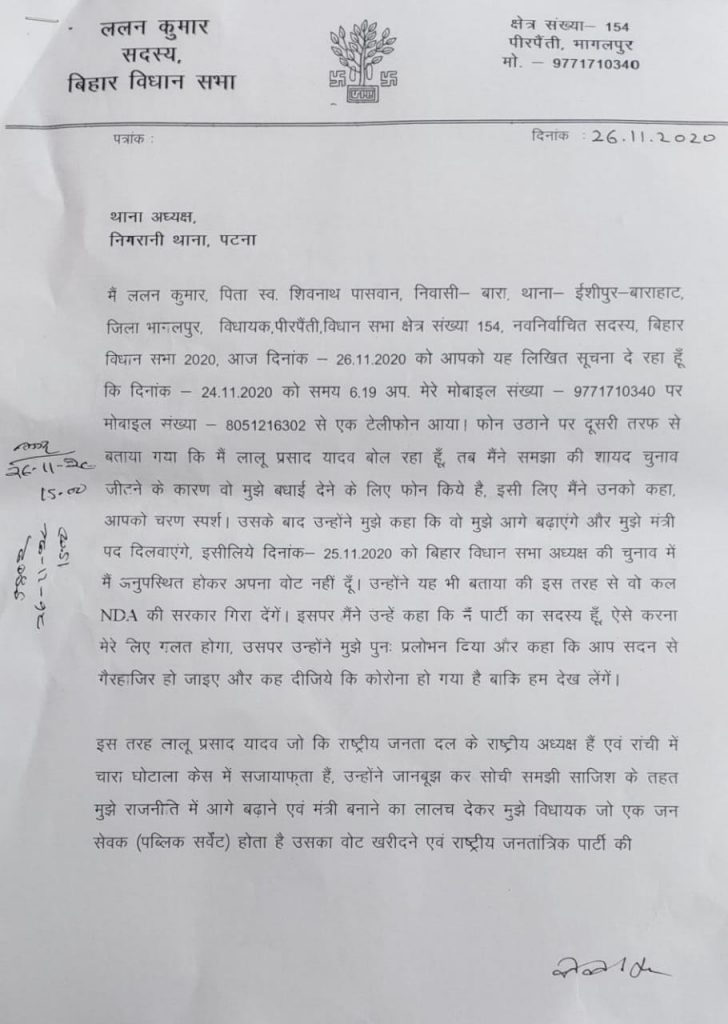 ललन कुमार
सदस्य,
बिहार विधान सभा
क्षेत्र संख्या– 154
पीरपैंती, भागलपुर
मो. – 9771710340
पत्रांक :
दिनांक : 26.11.2020
थाना अध्यक्ष,
निगरानी थाना, पटना
मैं ललन कुमार, पिता स्व. शिवनाथ पासवान, निवासी– बारा, थाना– ईशीपुर–बाराहाट,
जिला भागलपुर, विधायक,पीरपैंती,विधान सभा क्षेत्र संख्या 154, नवनिर्वाचित सदस्य, बिहार
विधान सभा 2020, आज दिनांक – 26.11.2020 को आपको यह लिखित सूचना दे रहा हूँ
कि दिनांक – 24.11.2020 को समय 6.19 अप. मेरे मोबाइल संख्या – 9771710340 पर
मोबाइल संख्या – 8051216302 से एक टेलीफोन आया। फोन उठाने पर दूसरी तरफ से
बताया गया कि मैं लालू प्रसाद यादव बोल रहा हूँ, तब मैंने समझा की शायद चुनाव
जीटने के कारण वो मुझे बधाई देने के लिए फोन किये है, इसी लिए मैंने उनको कहा,
आपको चरण स्पर्श। उसके बाद उन्होंने मुझे कहा कि वो मुझे आगे बढ़ाएंगे और मुझे मंत्री
पद दिलवाएंगे, इसीलिये दिनांक– 25.11.2020 को बिहार विधान सभा अध्यक्ष की चुनाव में
मैं अनुपस्थित होकर अपना वोट नहीं दूँ। उन्होंने यह भी बताया की इस तरह से वो कल
NDA की सरकार गिरा देंगें। इसपर मैंने उन्हें कहा कि मैं पार्टी का सदस्य हूँ, ऐसे करना
मेरे लिए गलत होगा, उसपर उन्होंने मुझे पुनः प्रलोभन दिया और कहा कि आप सदन से
गैरहाजिर हो जाइए और कह दीजिये कि कोरोना हो गया है बाकि हम देख लेंगें।
26-11-20
15.00
इस तरह लालू प्रसाद यादव जो कि राष्ट्रीय जनता दल के राष्ट्रीय अध्यक्ष हैं एवं रांची में
चारा घोटाला केस में सजायाफ्ता हैं, उन्होंने जानबूझ कर सोची समझी साजिश के तहत
मुझे राजनीति में आगे बढ़ाने एवं मंत्री बनाने का लालच देकर मुझे विधायक जो एक जन
सेवक (पब्लिक सर्वेंट) होता है उसका वोट खरीदने एवं राष्ट्रीय जनतांत्रिक पार्टी की